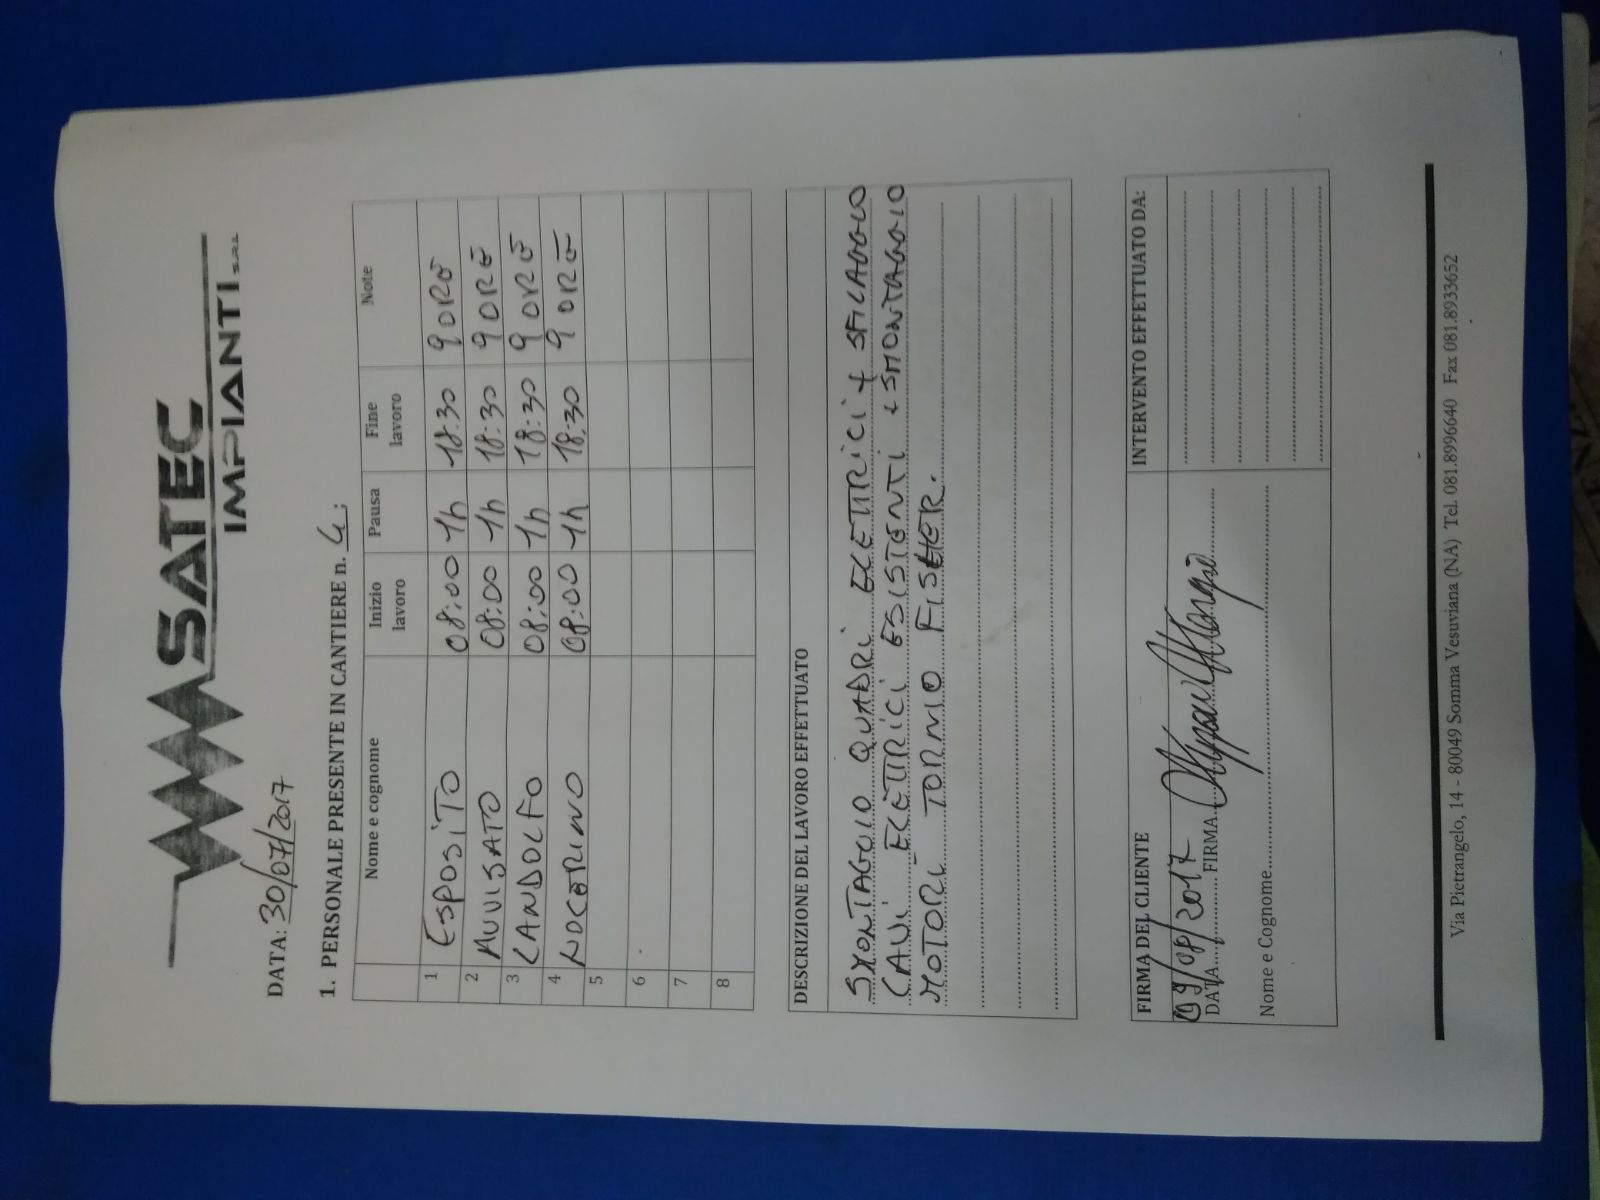 SATEC
IMPIANTI S.R.L.
DATA: 30/07/2017
1. PERSONALE PRESENTE IN CANTIERE n. 4:
Nome e cognome Inizio lavoro Pausa Fine lavoro Note
1 ESPOSITO 08:00 1h 18:30 9 ORE
2 AUVISATO 08:00 1h 18:30 9 ORE
3 LANDOLFO 08:00 1h 18:30 9 ORE
4 NOCERINO 08:00 1h 18:30 9 ORE
5
6
7
8
DESCRIZIONE DEL LAVORO EFFETTUATO
SMONTAGGIO QUADRI ELETTRICI + SFILAGGIO
CAVI ELETTRICI ESISTENTI + SMONTAGGIO
MOTORI TORNIO FISHER.
FIRMA DEL CLIENTE INTERVENTO EFFETTUATO DA:
DATA 09/08/2017 FIRMA
Nome e Cognome
Via Pietrangelo, 14 - 80049 Somma Vesuviana (NA) Tel. 081.8996640 Fax 081.8933652